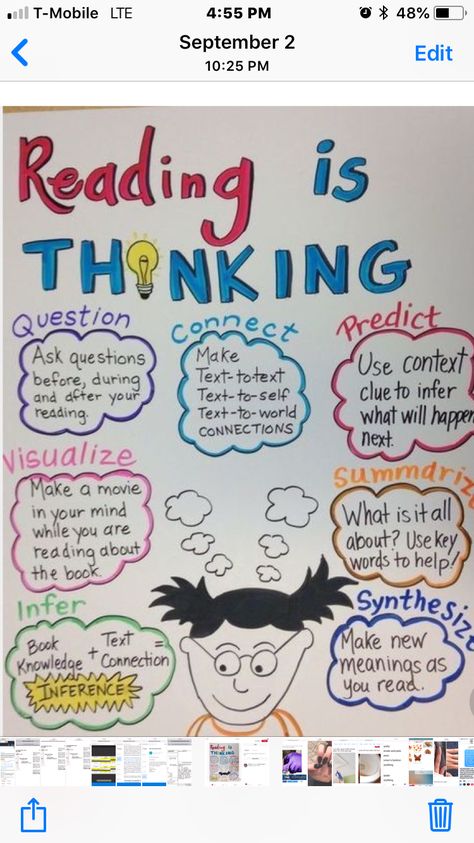 T-Mobile LTE 4:55 PM 48%
September 2
10:25 PM
Edit
Reading is
THINKING
Question
Ask questions
before, during
and after your
reading.
Connect
Make
Text-to-text
Text-to-self
Text-to-world
CONNECTIONS
Predict
Use context
clue to infer
what will happen
next.
Visualize
Make a movie
in your mind
while you are
reading about
the book.
Summariz
What is it all
about? Use key
words to help!
Infer
Book Knowledge + Text Connection =
INFERENCE
Synthesize
Make new
meanings as
you read.